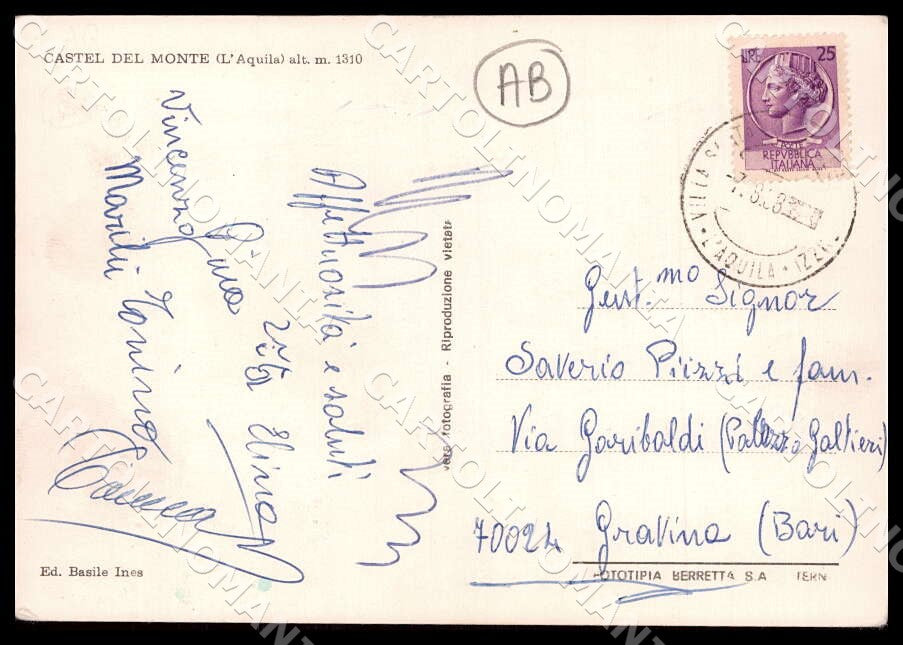 CASTEL DEL MONTE (L'Aquila) alt. m. 1310
AB
LIRE 25
POSTE
REPVBBLICA
ITALIANA
VILLA S.
L'AQUILA
Affettuosità e saluti
Elino
Vincenzo Gina
Marilù Tonino
vera fotografia - Riproduzione vietata
Gent.mo Signor
Saverio Pizzi e fam.
Via Garibaldi (Palazzo Galtieri)
70024 Gravina (Bari)
Ed. Basile Ines
FOTOTIPIA BERRETTA S.A TERN
CARTOLINOMANTIA